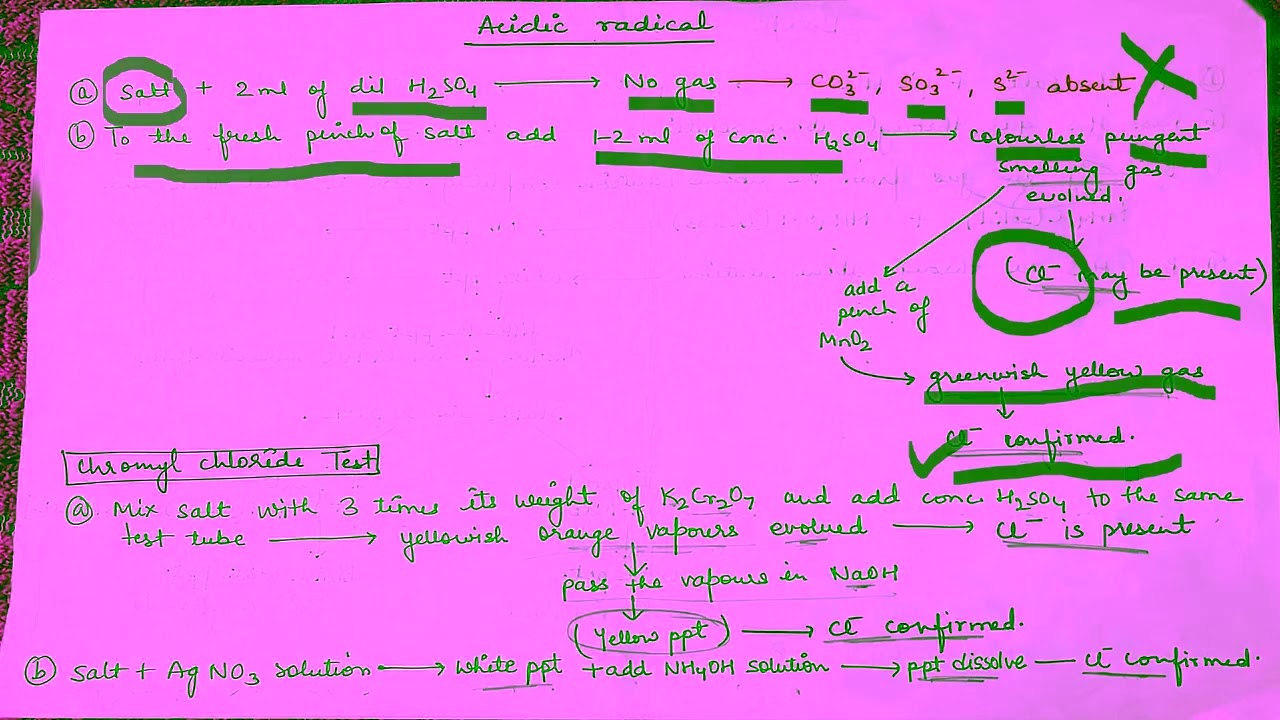 Acidic radical
ⓐ Salt + 2 ml of dil H₂SO₄ ⟶ No gas ⟶ CO₃²⁻, SO₃²⁻, S²⁻ absent
ⓑ To the fresh pinch of salt add 1-2 ml of conc. H₂SO₄ ⟶ colourless pungent
smelling gas
evolved.
(Cl⁻ may be present)
add a
pinch of
MnO₂
greenwish yellow gas
Cl⁻ confirmed.
Chromyl chloride Test
ⓐ Mix salt with 3 times its weight of K₂Cr₂O₇ and add conc H₂SO₄ to the same
test tube ⟶ yellowish orange vapours evolved ⟶ Cl⁻ is present
pass the vapours in NaOH
(Yellow ppt) ⟶ Cl⁻ confirmed.
ⓑ Salt + AgNO₃ solution ⟶ white ppt + add NH₄OH solution ⟶ ppt dissolve — Cl⁻ confirmed.